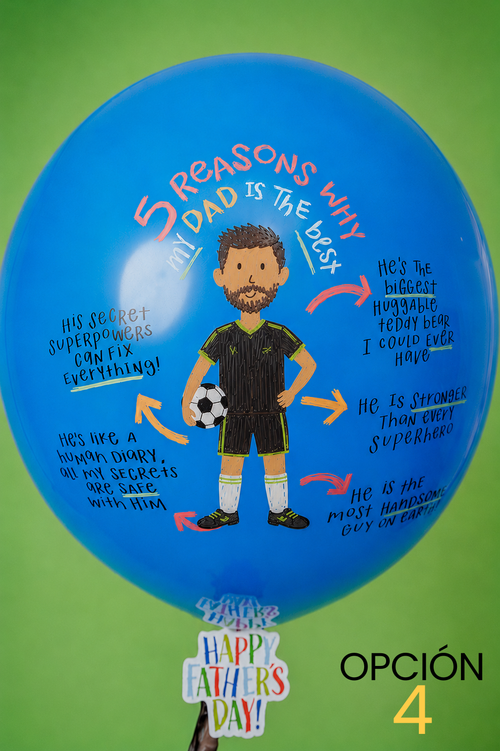 5 REASONS WHY
MY DAD IS THE best
HIS SECRET
SUPERPOWERS
CAN FIX
EVERYTHING!
HE'S LIKE A
HUMAN DIARY,
ALL MY SECRETS
ARE SAFE
WITH HIM
HE'S THE
BIGGEST
HUGGABLE
TEDDY BEAR
I COULD EVER
HAVE
HE IS STRONGER
THAN EVERY
SUPERHERO
HE IS THE
MOST HANDSOME
GUY ON EARTH
HAPPY
FATHER'S
DAY!
OPCIÓN
4